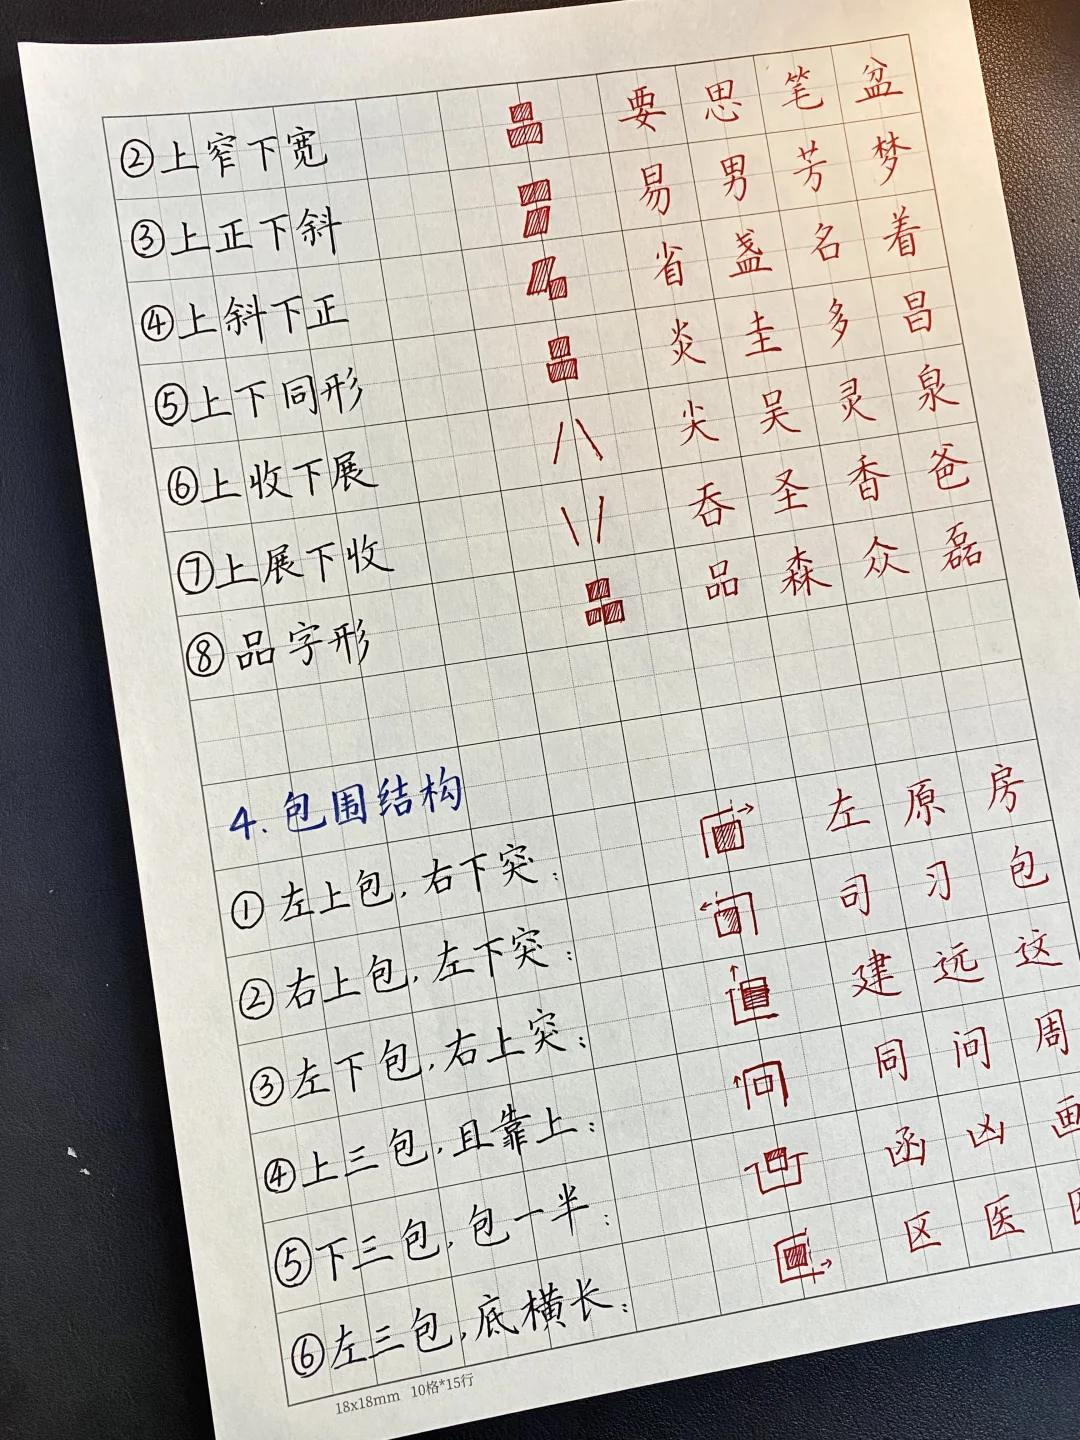 ②上窄下宽 要 思 笔 盆
③上正下斜 易 男 芳 梦
④上斜下正 省 盏 名 着
⑤上下同形 炎 圭 多 昌
⑥上收下展 尖 吴 灵 泉
⑦上展下收 吞 圣 香 爸
⑧品字形 品 森 众 磊
4.包围结构
①左上包,右下突: 左 原 房
②右上包,左下突: 司 习 包
③左下包,右上突: 建 远 这
④上三包,且靠上: 同 问 周
⑤下三包,包一半: 函 凶 画
⑥左三包,底横长: 区 医
18x18mm 10格*15行